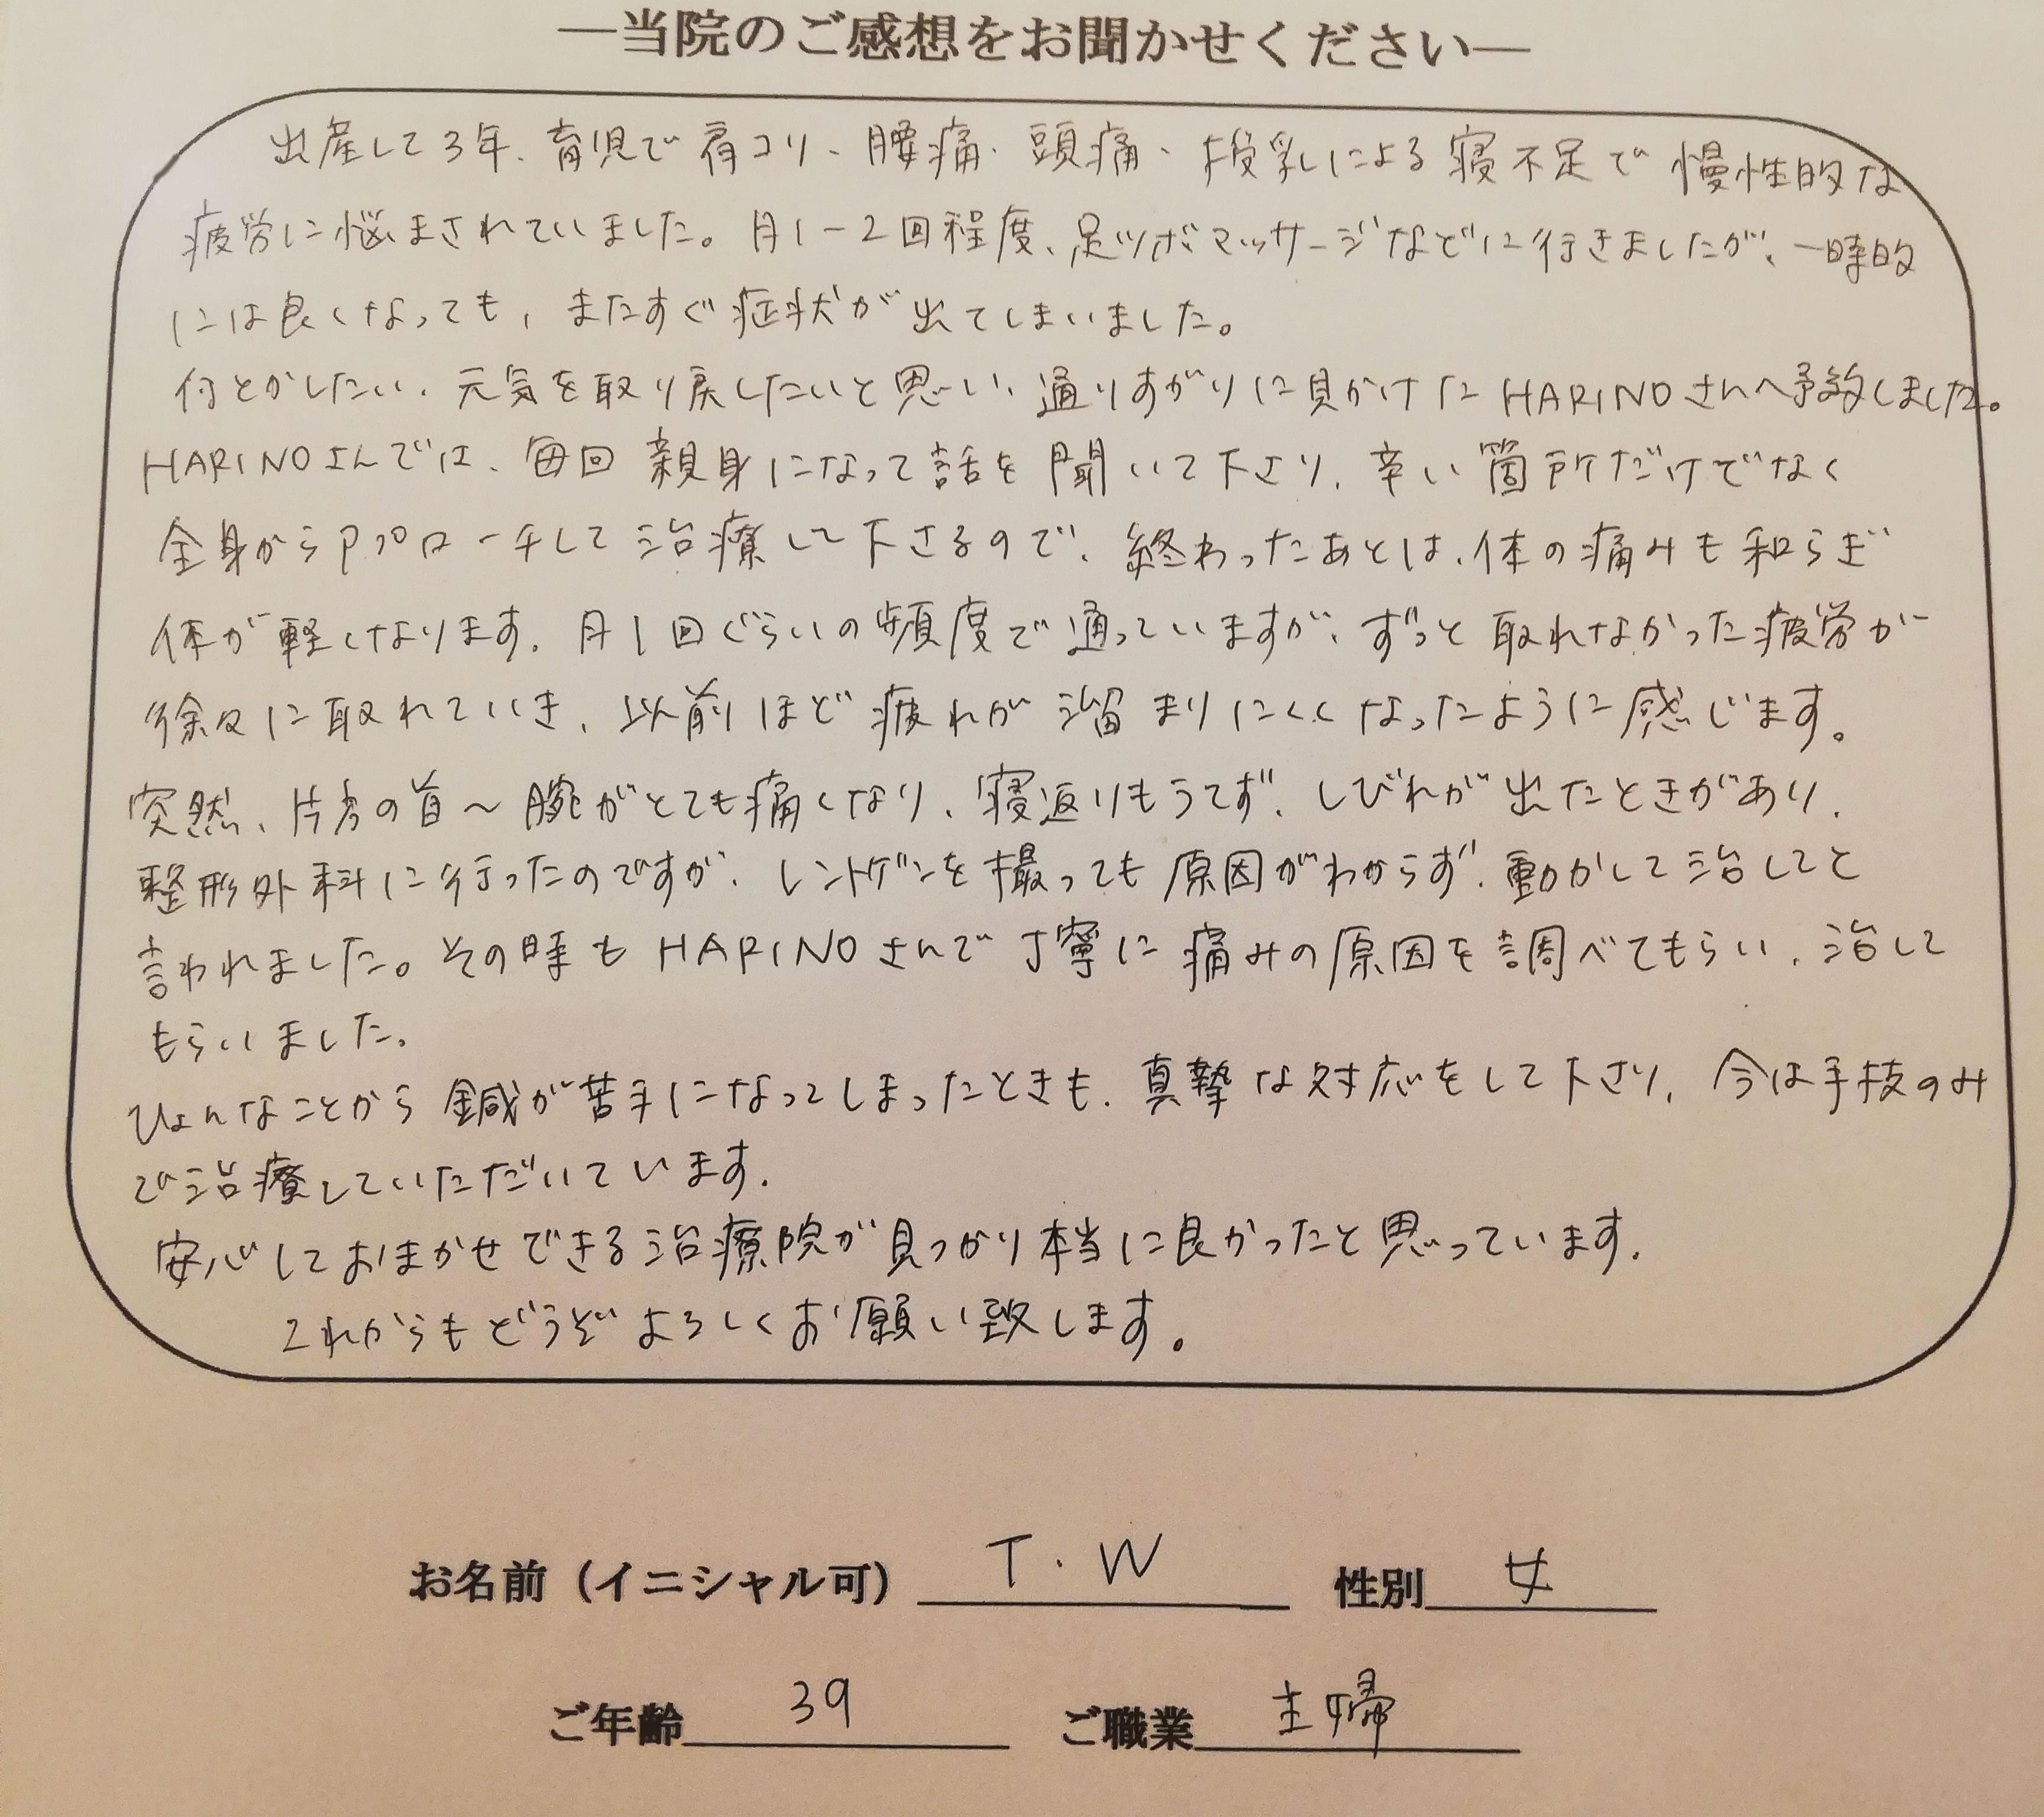 ―当院のご感想をお聞かせください―
出産して3年、育児で肩コリ、腰痛、頭痛、授乳による寝不足で慢性的な
疲労に悩まされていました。月1-2回程度、足ツボマッサージなどに行きましたが、一時的
には良くなっても、またすぐ症状が出てしまいました。
何とかしたい、元気を取り戻したいと思い、通りすがりに見かけたHARINOさんへ予約しました。
HARINOさんでは、毎回親身になって話を聞いて下さり、辛い箇所だけでなく
全身からアプローチして治療して下さるので、終わったあとは、体の痛みも和らぎ
体が軽くなります。月1回ぐらいの頻度で通っていますが、ずっと取れなかった疲労が
徐々に取れていき、以前ほど疲れが溜まりにくくなったように感じます。
突然、片方の首~腕がとても痛くなり、寝返りもうてず、しびれが出たときがあり、
整形外科に行ったのですが、レントゲンを撮っても原因がわからず、動かして治してと
言われました。その時もHARINOさんで丁寧に痛みの原因を調べてもらい、治して
もらいました。
ひょんなことから鍼が苦手になってしまったときも、真摯な対応をして下さり、今は手技のみ
で治療していただいています。
安心しておまかせできる治療院が見つかり本当に良かったと思っています。
これからもどうぞよろしくお願い致します。
お名前(イニシャル可) T.W 性別 女
ご年齢 39 ご職業 主婦